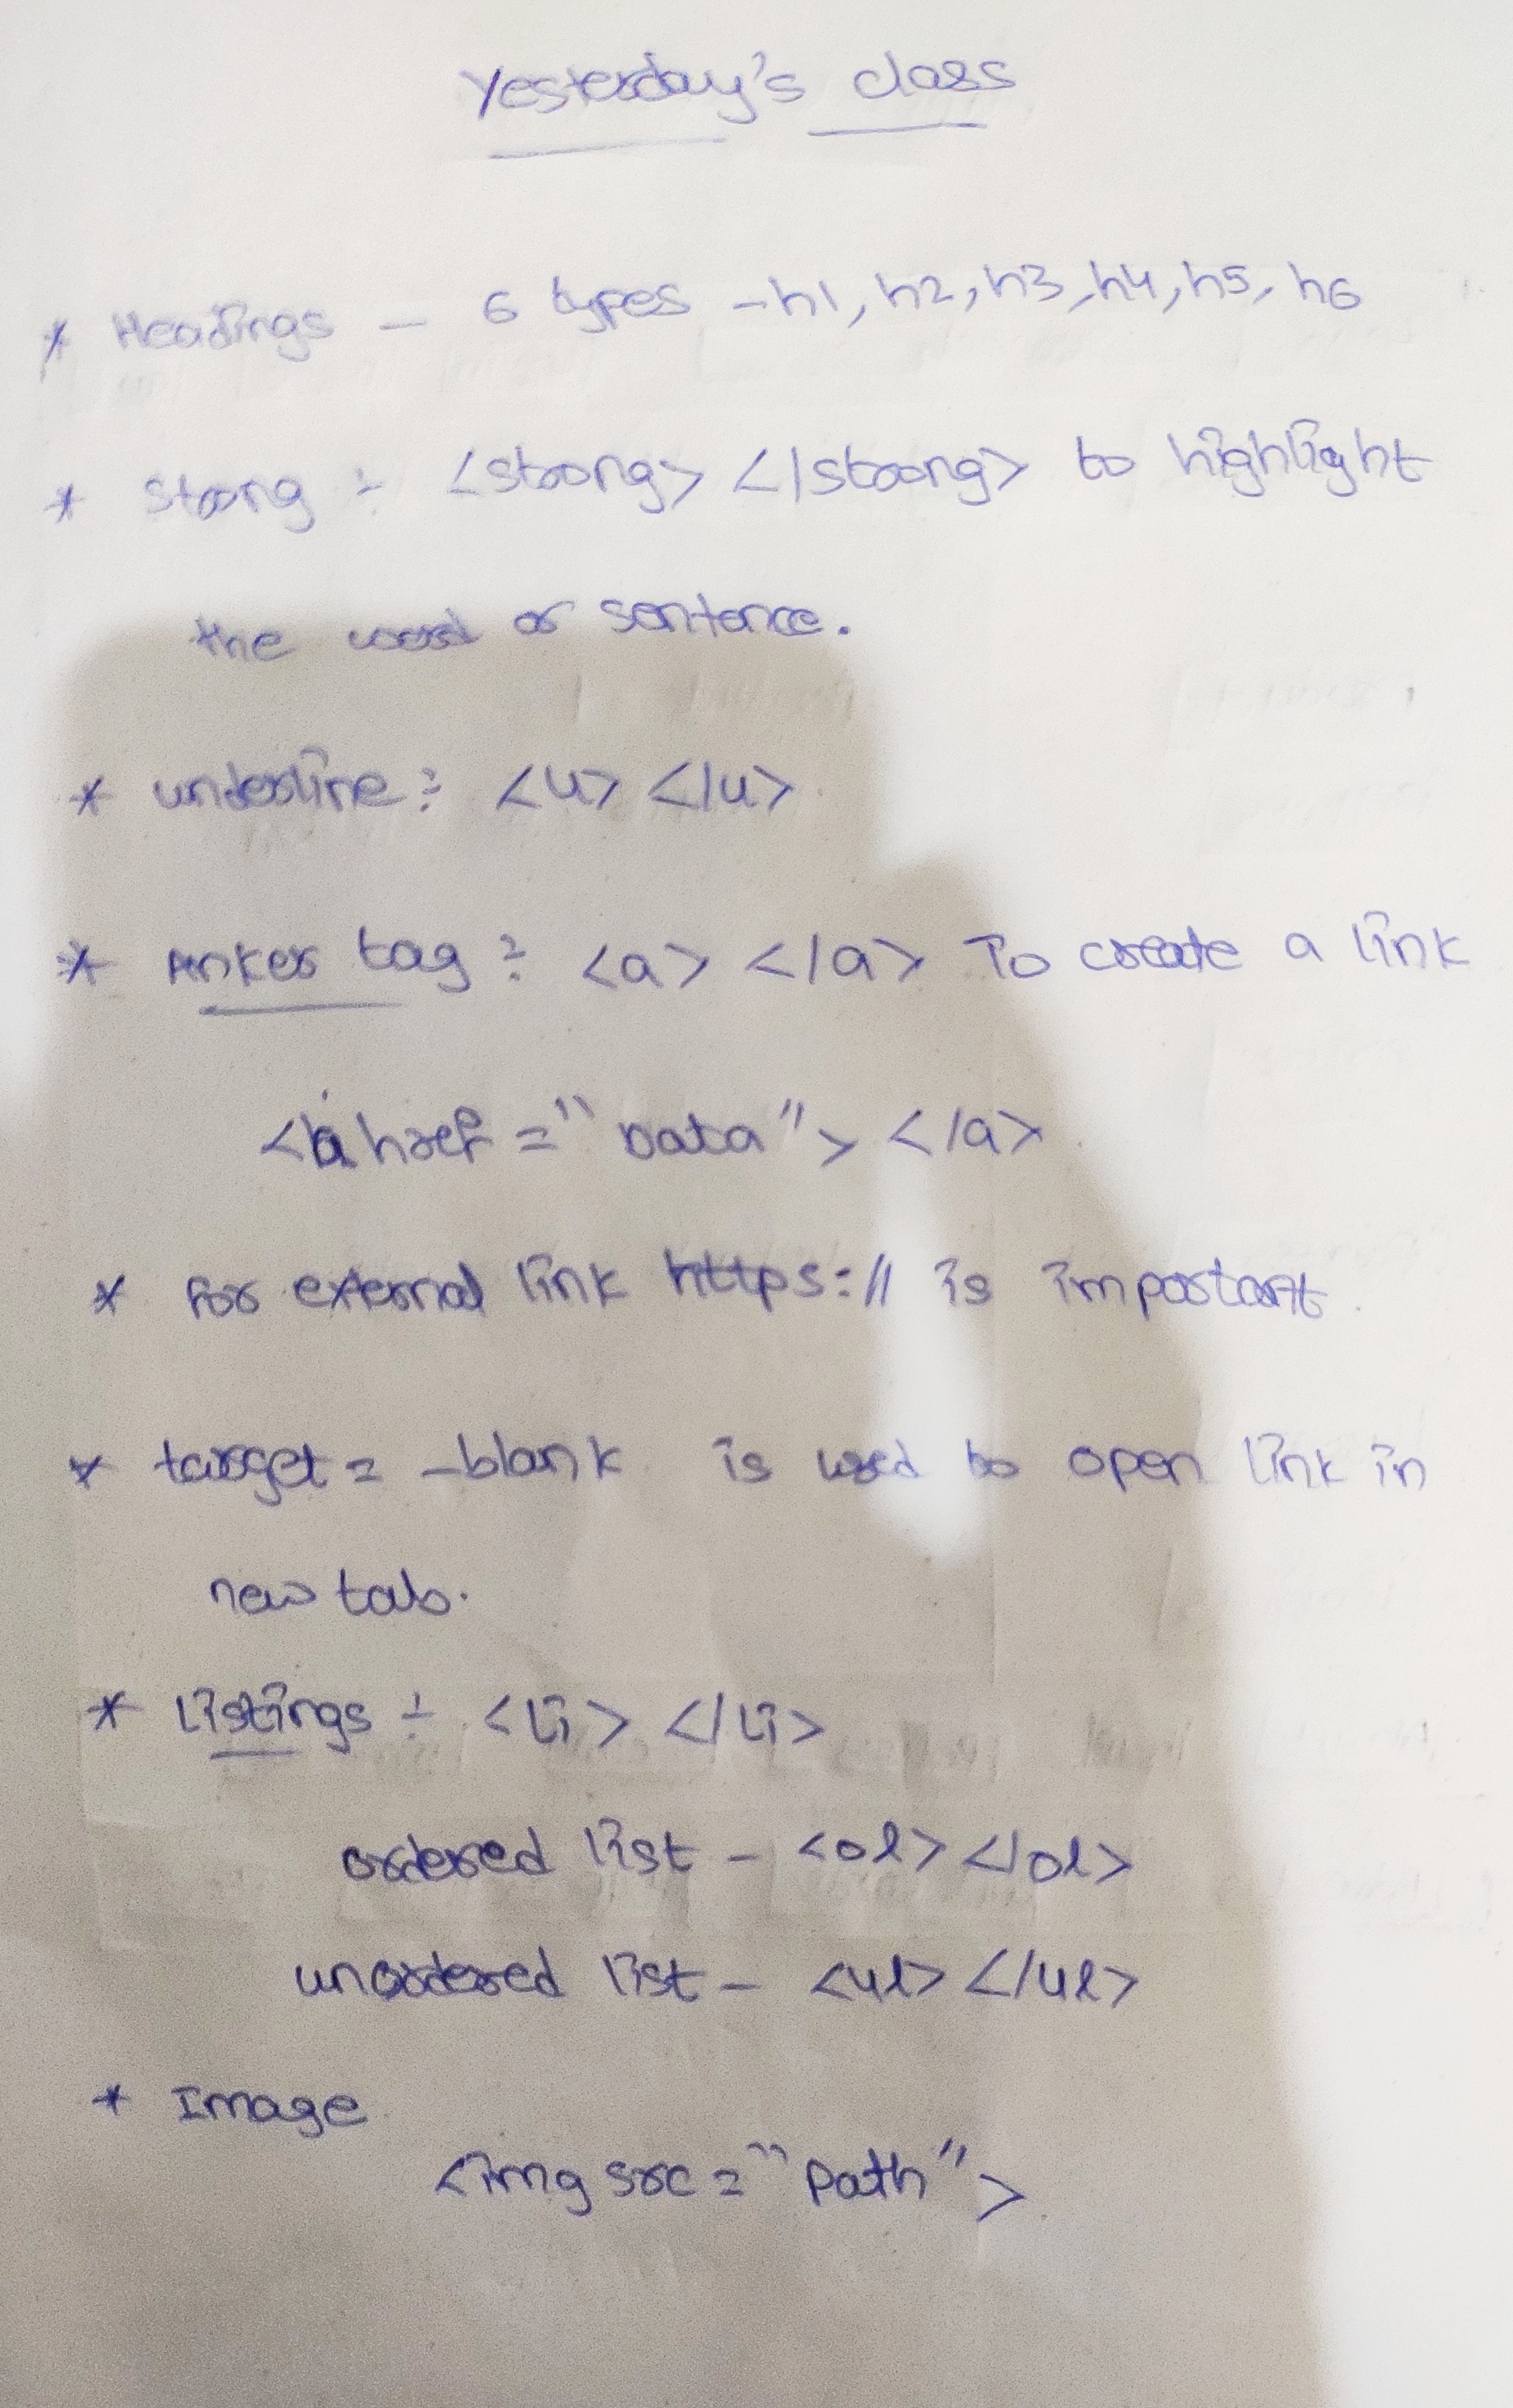 Yesterday's class
* Headings - 6 types - h1, h2, h3, h4, h5, h6
* Strong :- <strong> </strong> to highlight
the word or sentence.
* underline :- <u> </u>
* Anker tag :- <a> </a> To create a link
<a href = "Data"> </a>
* for external link https:// is important.
* target = _blank is used to open link in
new tab.
* Listings :- <li> </li>
ordered list - <ol> </ol>
unordered list - <ul> </ul>
* Image
<img src = "Path">